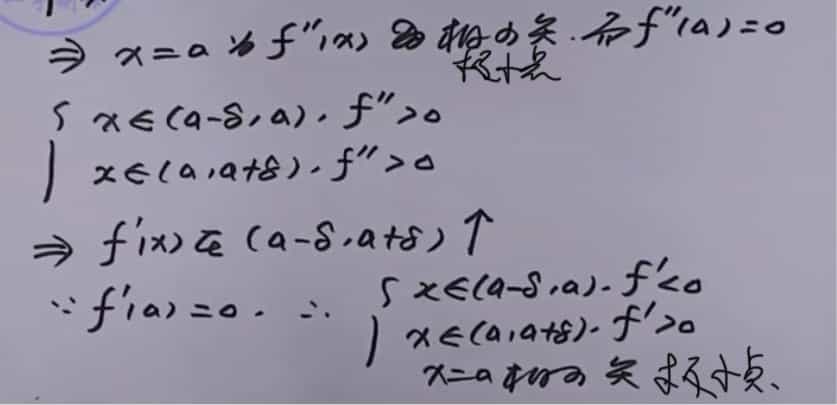 ⇒ x=a为f''(x)的极小点.而f''(a)=0
极小点
{ x∈(a-δ,a), f''>0
x∈(a,a+δ), f''>0
⇒ f'(x)在(a-δ,a+δ)↑
∵f'(a)=0. ∴ { x∈(a-δ,a), f'<0
x∈(a,a+δ), f'>0
x=a极小点 极小点、